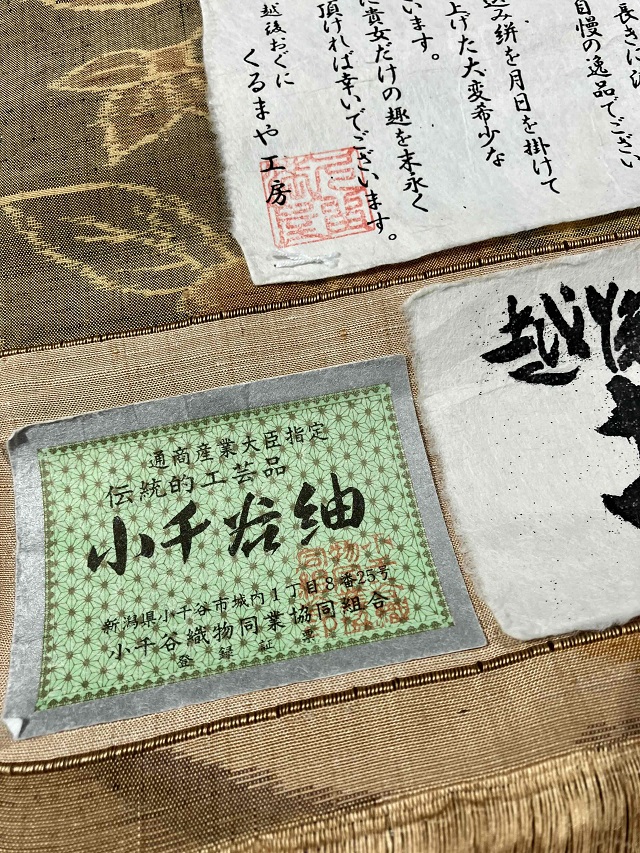 長きに
自慢の逸品でござい
込み絣を月日を掛けて
上げた大変希少な
います。
に貴女だけの趣を末永く
頂ければ幸いでございます。
越後おぐに
くるまや工房
越後
通商産業大臣指定
伝統的工芸品
小千谷紬
新潟県小千谷市城内1丁目8番25号
小千谷織物同業協同組合
登録証票